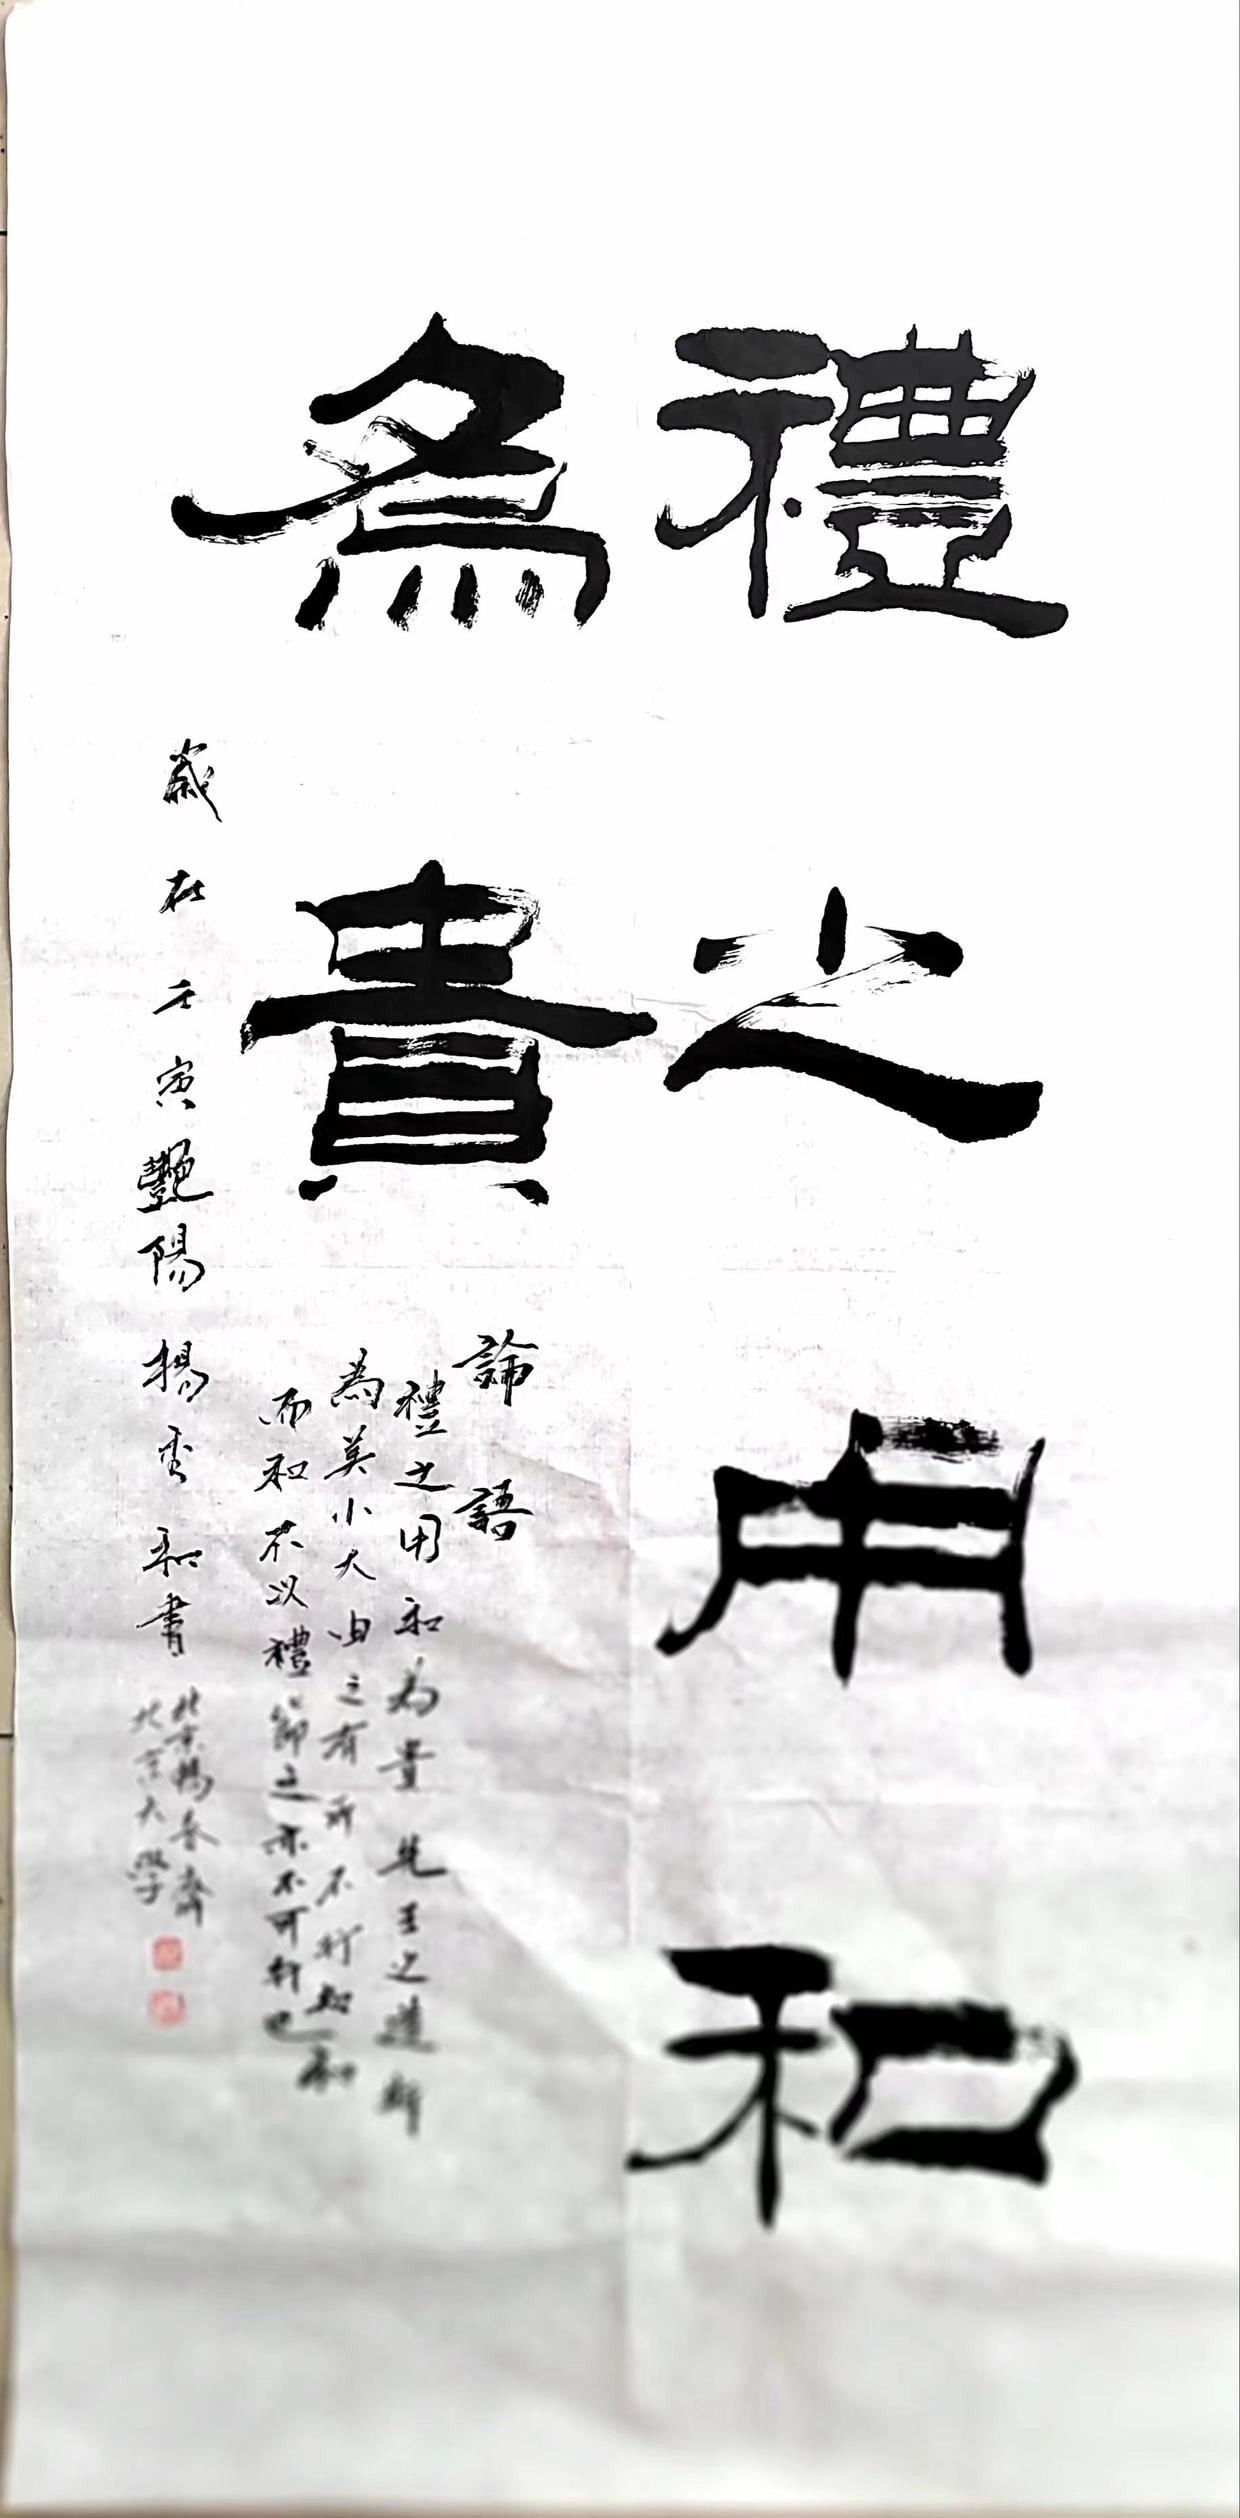 禮之用和
為貴
論語
禮之用和為貴先王之道斯
為美小大由之有所不行知和
而和不以禮節之亦不可行也
歲在壬寅艷陽楊重和書
北京楊春齋
北京大學